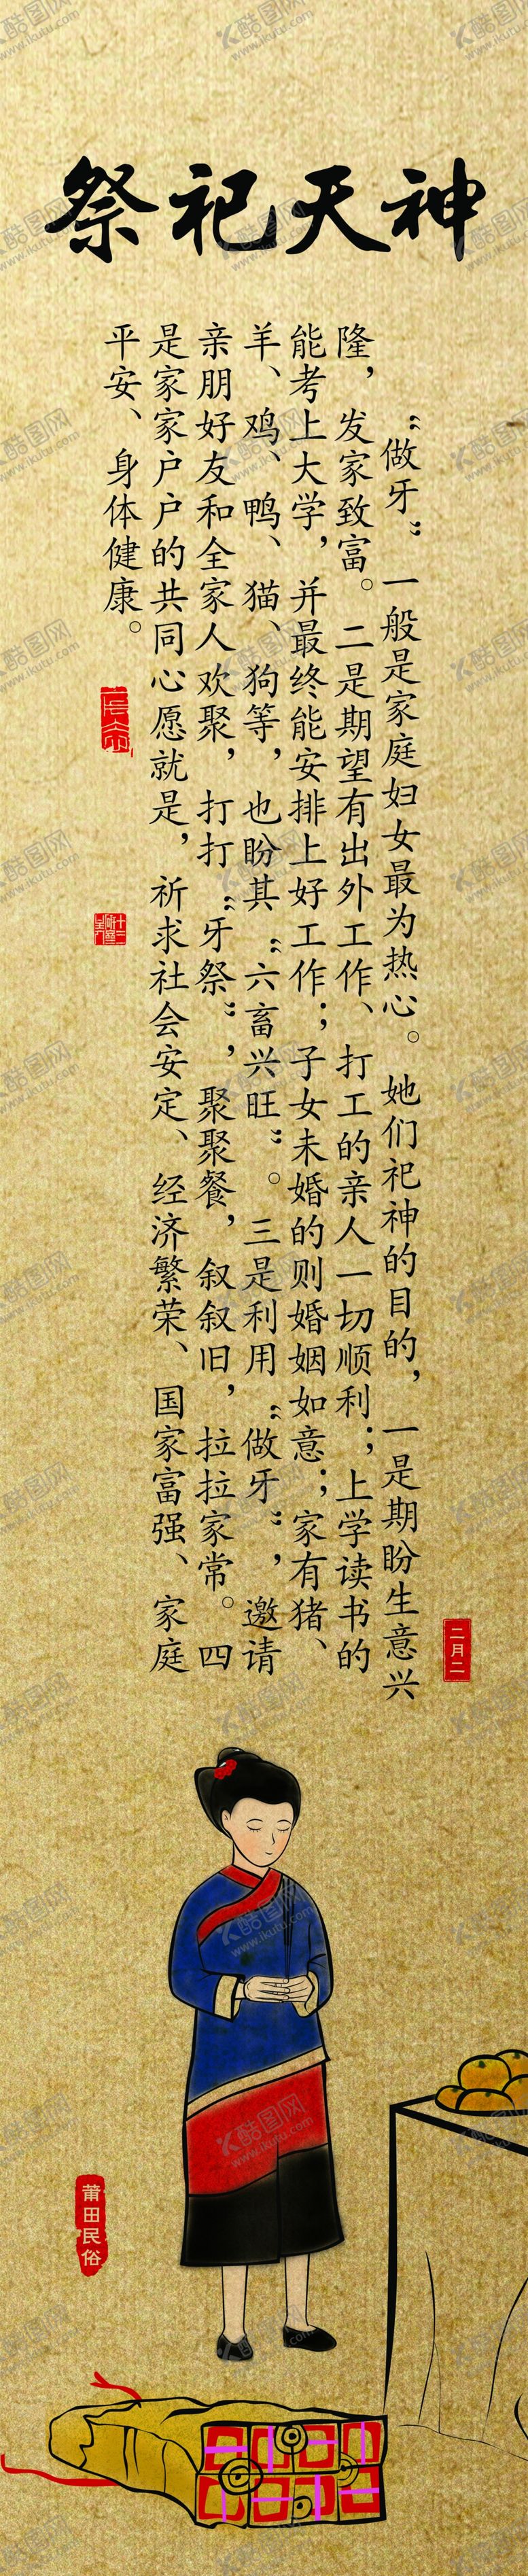 祭祀天神
“做牙”一般是家庭妇女最为热心。她们祀神的目的，一是期盼生意兴
隆，发家致富。二是期望有出外工作、打工的亲人一切顺利；上学读书的
能考上大学，并最终能安排上好工作；子女未婚的则婚姻如意；家有猪、
羊、鸡、鸭、猫、狗等，也盼其“六畜兴旺”。三是利用“做牙”，邀请
亲朋好友和全家人欢聚，打打“牙祭”，聚聚餐，叙叙旧，拉拉家常。四
是家家户户的共同心愿就是，祈求社会安定、经济繁荣、国家富强、家庭
平安、身体健康。
二月二
莆田民俗
酷图网
www.ikutu.com